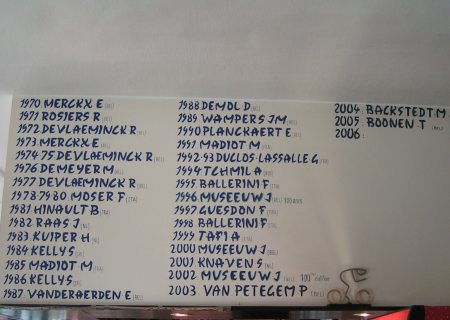 1970 MERCKX E (BEL)
1971 ROSIERS R (BEL)
1972 DEVLAEMINCK R (BEL)
1973 MERCKX E (BEL)
1974-75 DEVLAEMINCK R (BEL)
1976 DEMEYER M (BEL)
1977 DEVLAEMINCK R (BEL)
1978-79-80 MOSER F (ITA)
1981 HINAULT B (FRA)
1982 RAAS J (NL)
1983 KUIPER H (NL)
1984 KELLY S
1985 MADIOT M (FRA)
1986 KELLY S
1987 VANDERAERDEN E (BEL)
1988 DEMOL D (BEL)
1989 WAMPERS JM (BEL)
1990 PLANCKAERT E (BEL)
1991 MADIOT M (FRA)
1992-93 DUCLOS-LASSALLE G (FRA)
1994 TCHMIL A
1995 BALLERINI F (ITA)
1996 MUSEEUW J (BEL) 100 ANS
1997 GUESDON F (FRA)
1998 BALLERINI F (ITA)
1999 TAFI A (ITA)
2000 MUSEEUW J (BEL)
2001 KNAVEN S (NL)
2002 MUSEEUW J (BEL) 100ème édition
2003 VAN PETEGEM P (BEL)
2004 BACKSTEDT M
2005 BOONEN T (BEL)
2006